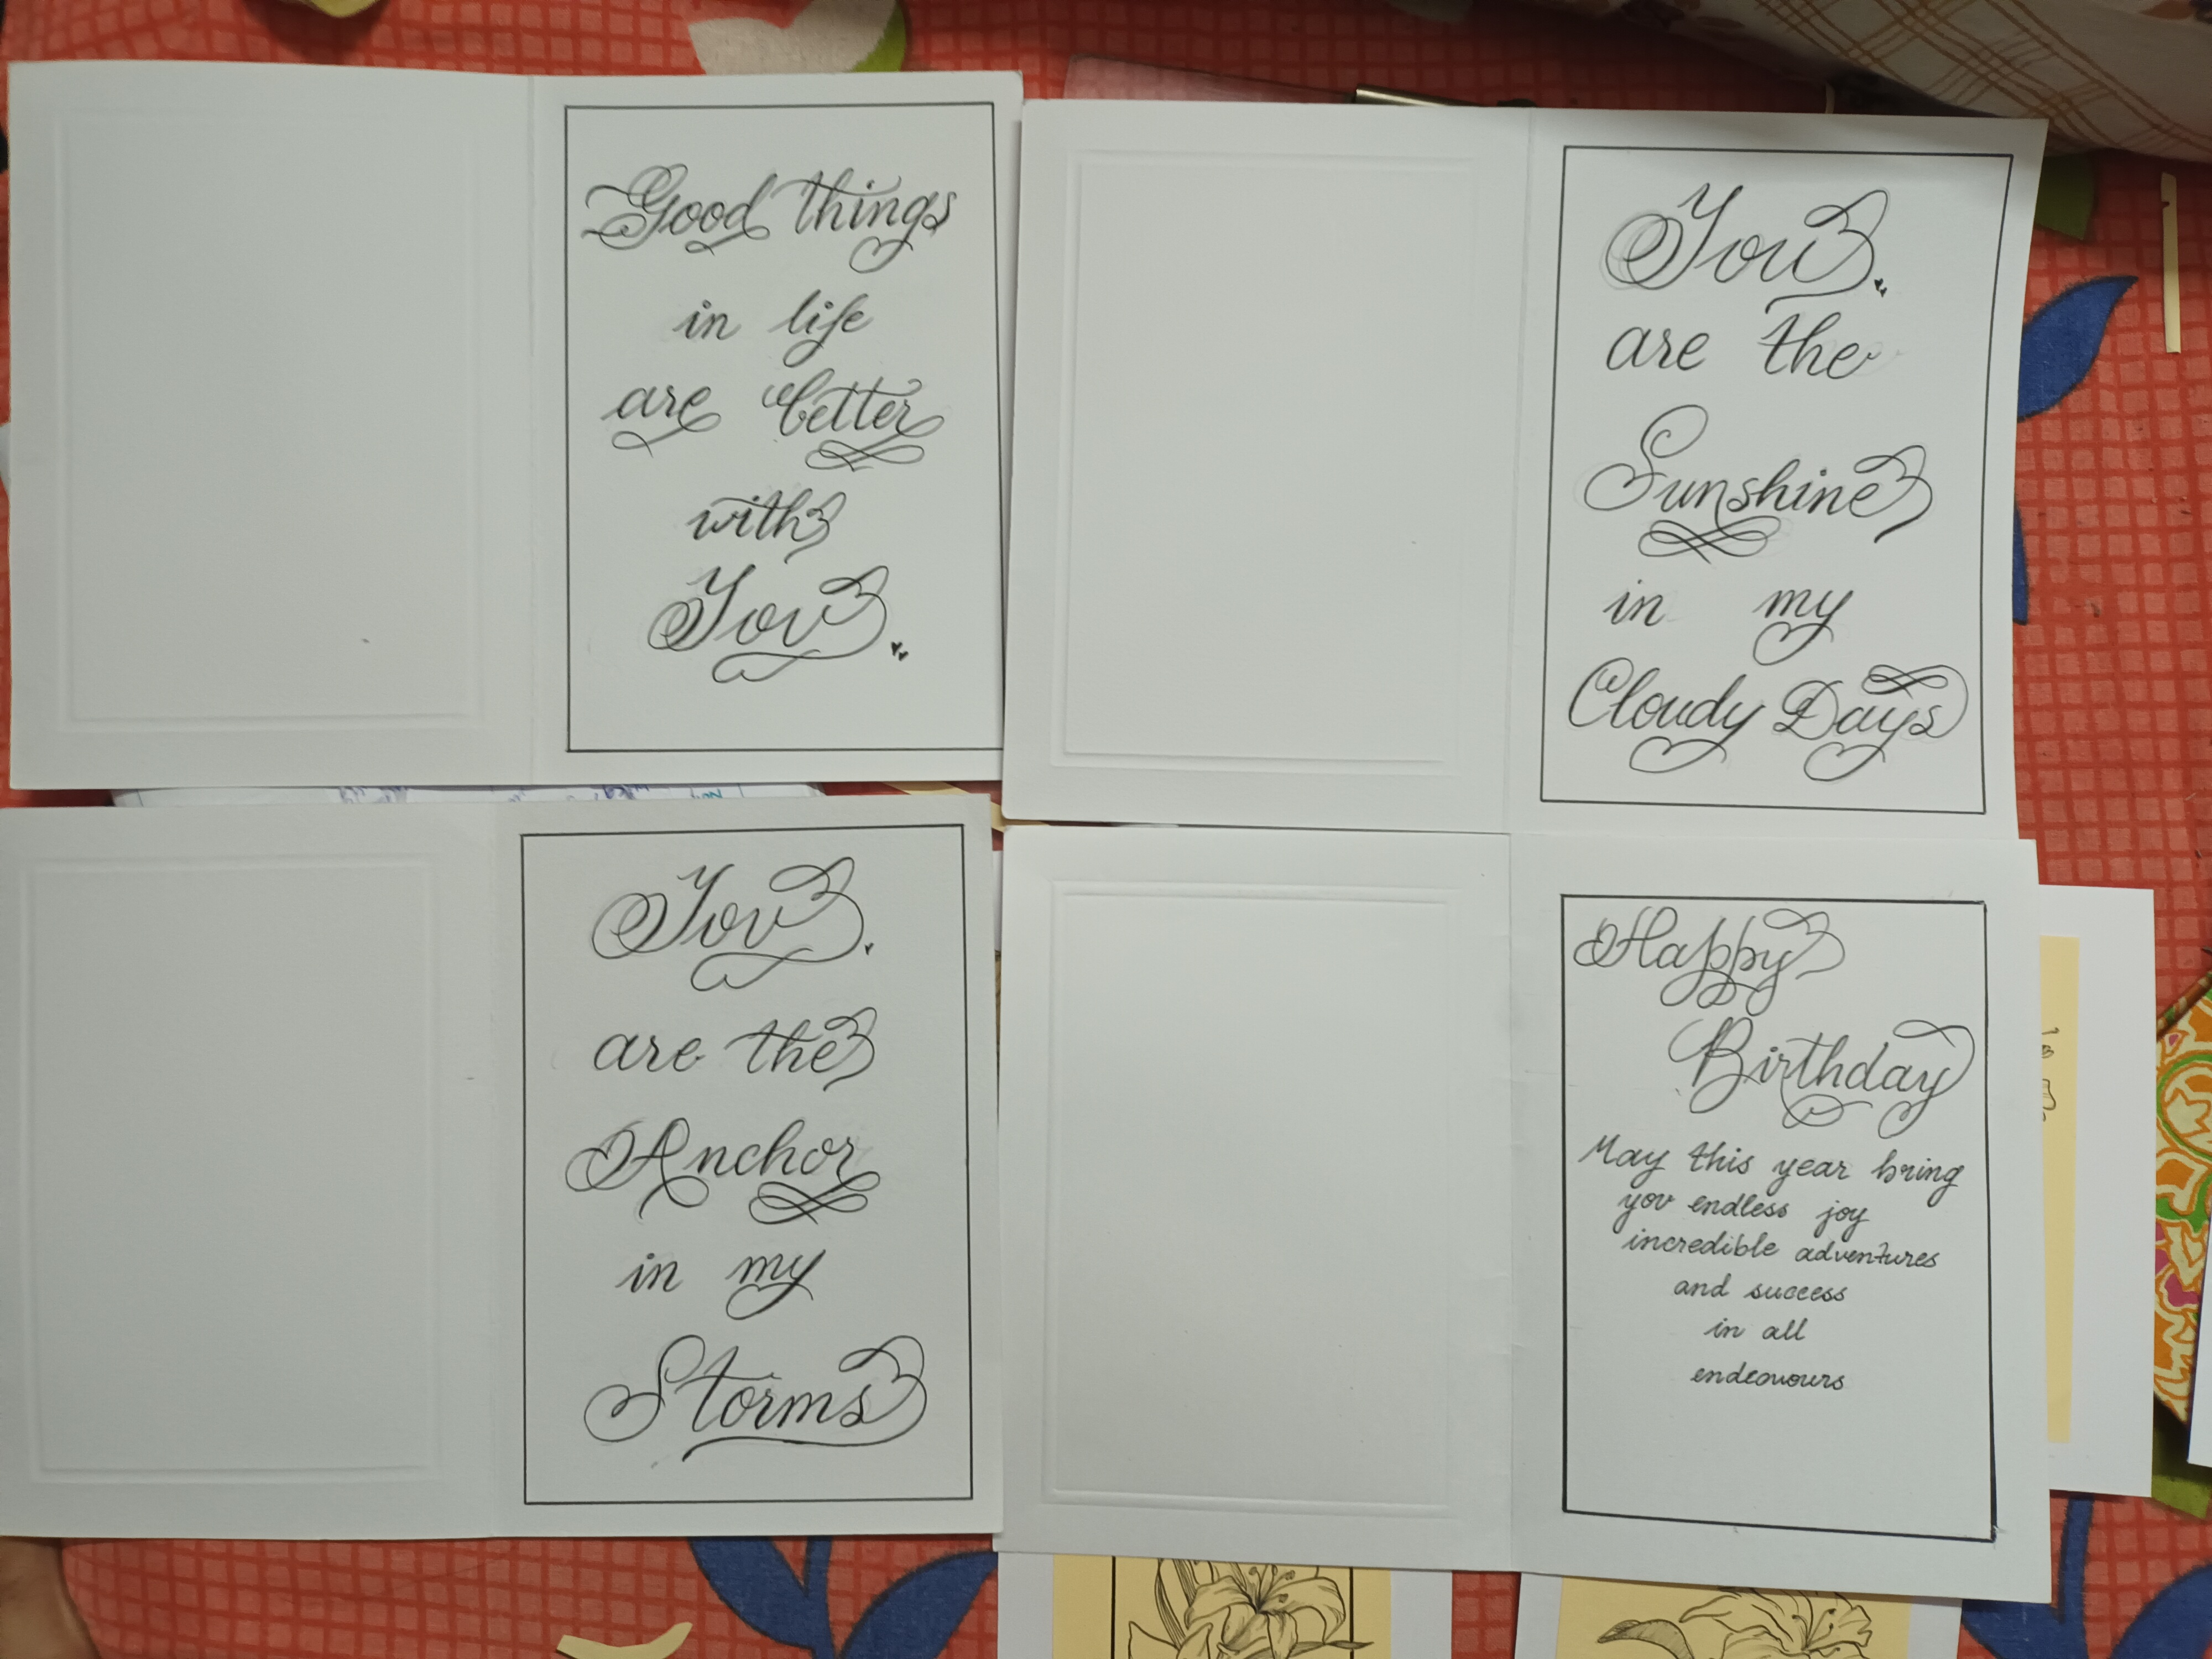 Good things
in life
are better
with
You
You
are the
Sunshine
in my
Cloudy Days
You
are the
Anchor
in my
Storms
Happy
Birthday
May this year bring
you endless joy
incredible adventures
and success
in all
endeavours